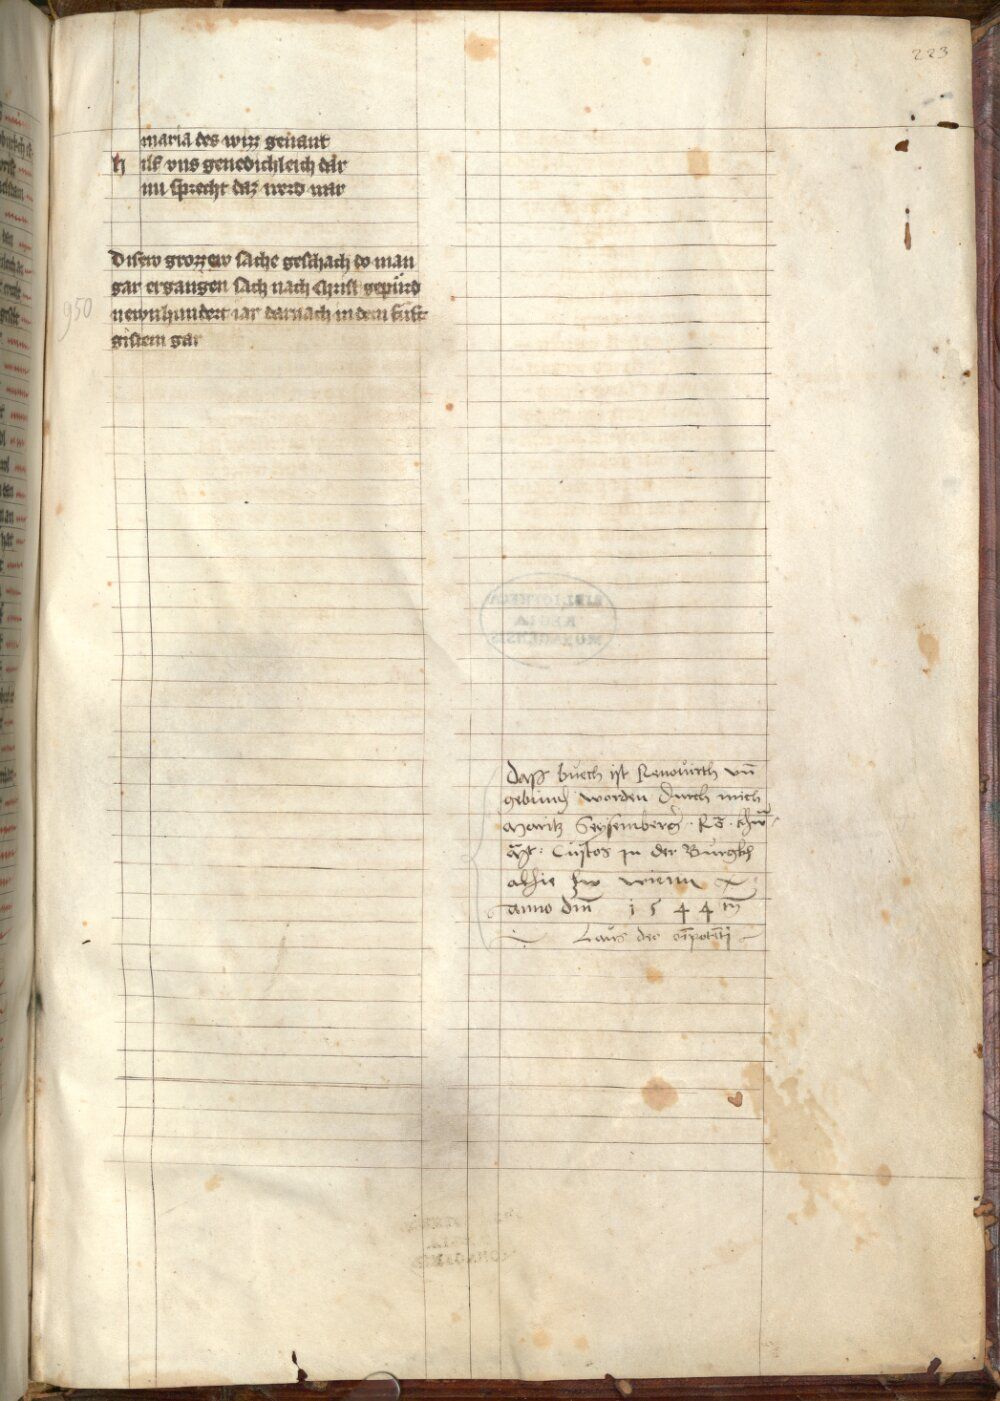 223
maria des wirt genant
hilf vns genedichleich dar
nu sprecht daz werd war
Disew grozzew sache geschach do man
gar ergangen sach nach Christ gepürd
newnhundert iar darnach in dem fünf
gistem gar
950
BIBLIOTHECA
REGIA
MONACENSIS
Dass buech ist Renovirth vn̄
gebund worden durch mich
Moritz Seysemberg R
Custos in der Burgkh
alhie zw wienn
anno dm̄ 1544 ten
Laus deo om̄potenti